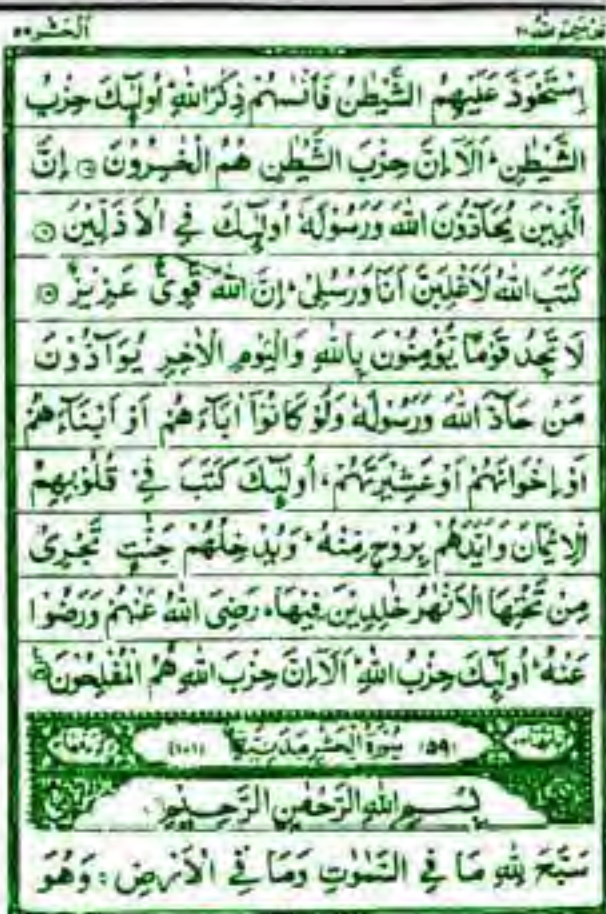 الحشر ٥٩
قد سمع الله ٢٨
اِسْتَحْوَذَ عَلَيْهِمُ الشَّيْطٰنُ فَاَنْسٰىهُمْ ذِكْرَ اللّٰهِ ؕ اُولٰٓئِكَ حِزْبُ
الشَّيْطٰنِ ؕ اَلَاۤ اِنَّ حِزْبَ الشَّيْطٰنِ هُمُ الْخٰسِرُوْنَ ۝ اِنَّ
الَّذِيْنَ يُحَآدُّوْنَ اللّٰهَ وَرَسُوْلَهٗۤ اُولٰٓئِكَ فِي الْاَذَلِّيْنَ ۝
كَتَبَ اللّٰهُ لَاَغْلِبَنَّ اَنَا وَرُسُلِيْ ؕ اِنَّ اللّٰهَ قَوِيٌّ عَزِيْزٌ ۝
لَا تَجِدُ قَوْمًا يُّؤْمِنُوْنَ بِاللّٰهِ وَالْيَوْمِ الْاٰخِرِ يُوَآدُّوْنَ
مَنْ حَآدَّ اللّٰهَ وَرَسُوْلَهٗ وَلَوْ كَانُوْۤا اٰبَآءَهُمْ اَوْ اَبْنَآءَهُمْ
اَوْ اِخْوَانَهُمْ اَوْ عَشِيْرَتَهُمْ ؕ اُولٰٓئِكَ كَتَبَ فِيْ قُلُوْبِهِمُ
الْاِيْمَانَ وَاَيَّدَهُمْ بِرُوْحٍ مِّنْهُ ؕ وَيُدْخِلُهُمْ جَنّٰتٍ تَجْرِيْ
مِنْ تَحْتِهَا الْاَنْهٰرُ خٰلِدِيْنَ فِيْهَا ؕ رَضِيَ اللّٰهُ عَنْهُمْ وَرَضُوْا
عَنْهُ ؕ اُولٰٓئِكَ حِزْبُ اللّٰهِ ؕ اَلَاۤ اِنَّ حِزْبَ اللّٰهِ هُمُ الْمُفْلِحُوْنَ ۝
(٥٩) سُوْرَةُ الْحَشْرِ مَدَنِيَّةٌ (١٠١)
بِسْمِ اللّٰهِ الرَّحْمٰنِ الرَّحِيْمِ
سَبَّحَ لِلّٰهِ مَا فِي السَّمٰوٰتِ وَمَا فِي الْاَرْضِ ۚ وَهُوَ